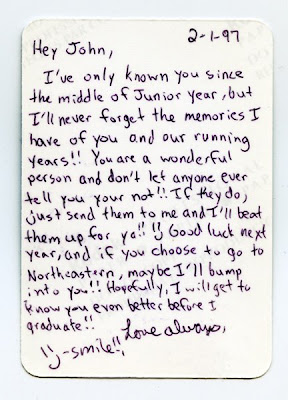 2-1-97
Hey John,
I've only known you since
the middle of Junior year, but
I'll never forget the memories I
have of you and our running
years!! You are a wonderful
person and don't let anyone ever
tell you your not!! If they do,
just send them to me and I'll beat
them up for ya!! !j Good luck next
year, and if you choose to go to
Northeastern, maybe I'll bump
into you!! Hopefully, I will get to
know you even better before I
graduate!!
Love always,
!j -smile!!